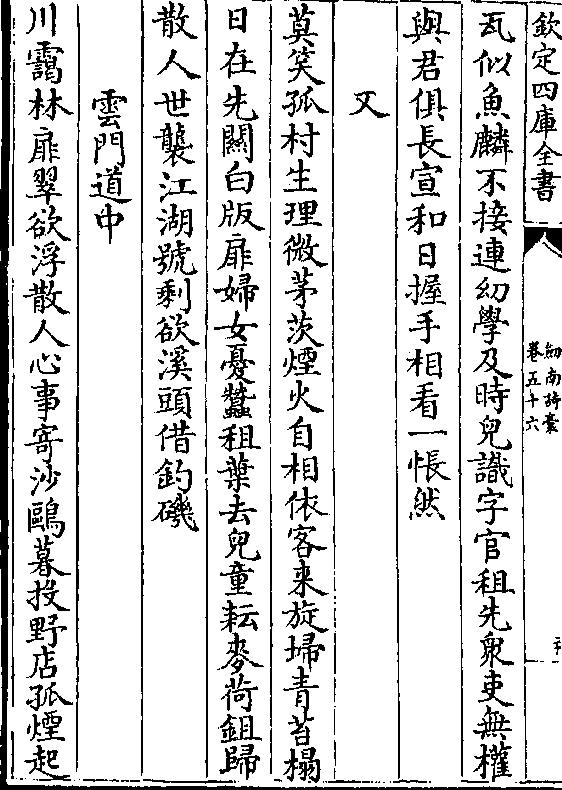 欽定四庫全書
劍南詩稾
卷五十六
瓦似魚鱗不接連幼學及時兒識字官租先衆吏無權
與君俱長宣和日握手相看一悵然
又
莫笑孤村生理微茅茨煙火自相依客来旋埽青苔榻
日在先關白版扉婦女憂蠶租葉去兒童耘麥荷鉏歸
散人世襲江湖號剩欲溪頭借釣磯
雲門道中
川靄林扉翠欲浮散人心事寄沙鷗暮投野店孤煙起